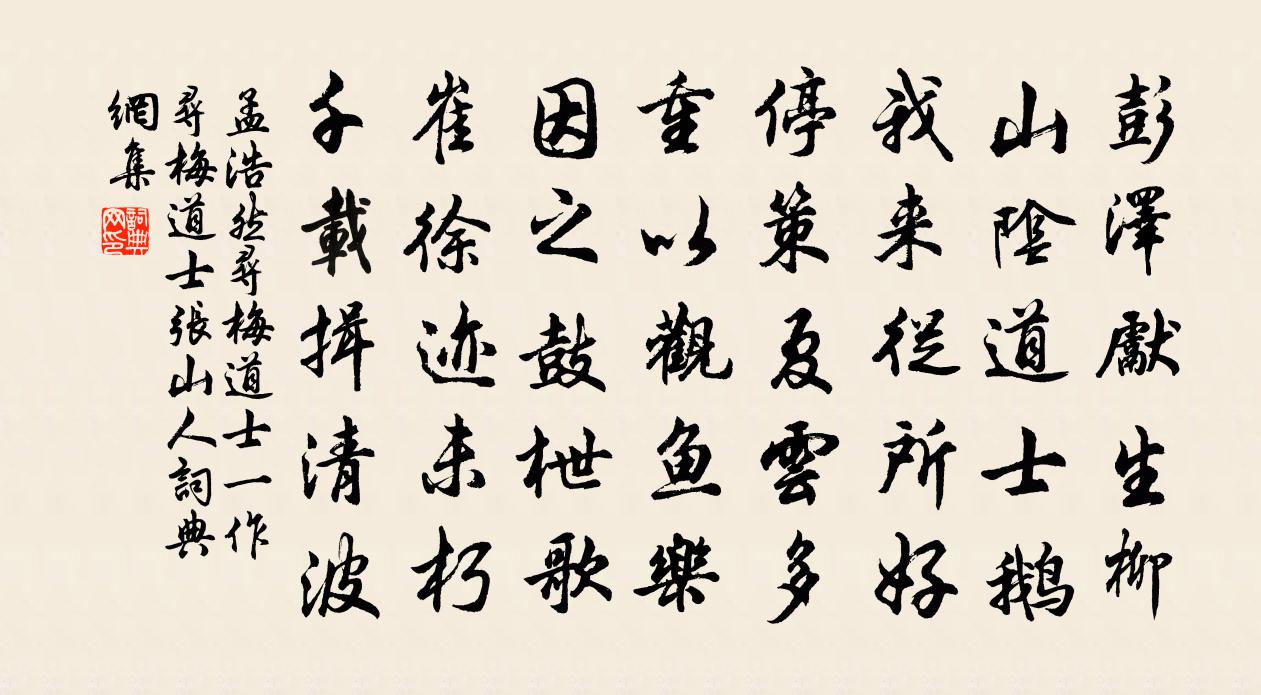 彭澤獻生柳
山陰道士鵝
我来從所好
停策夏雲多
重以觀鱼樂
因之鼓枻歌
崔徐迹未朽
千載揖清波
孟浩然尋梅道士一作
尋梅道士張山人詞典
網集
詞典
网印